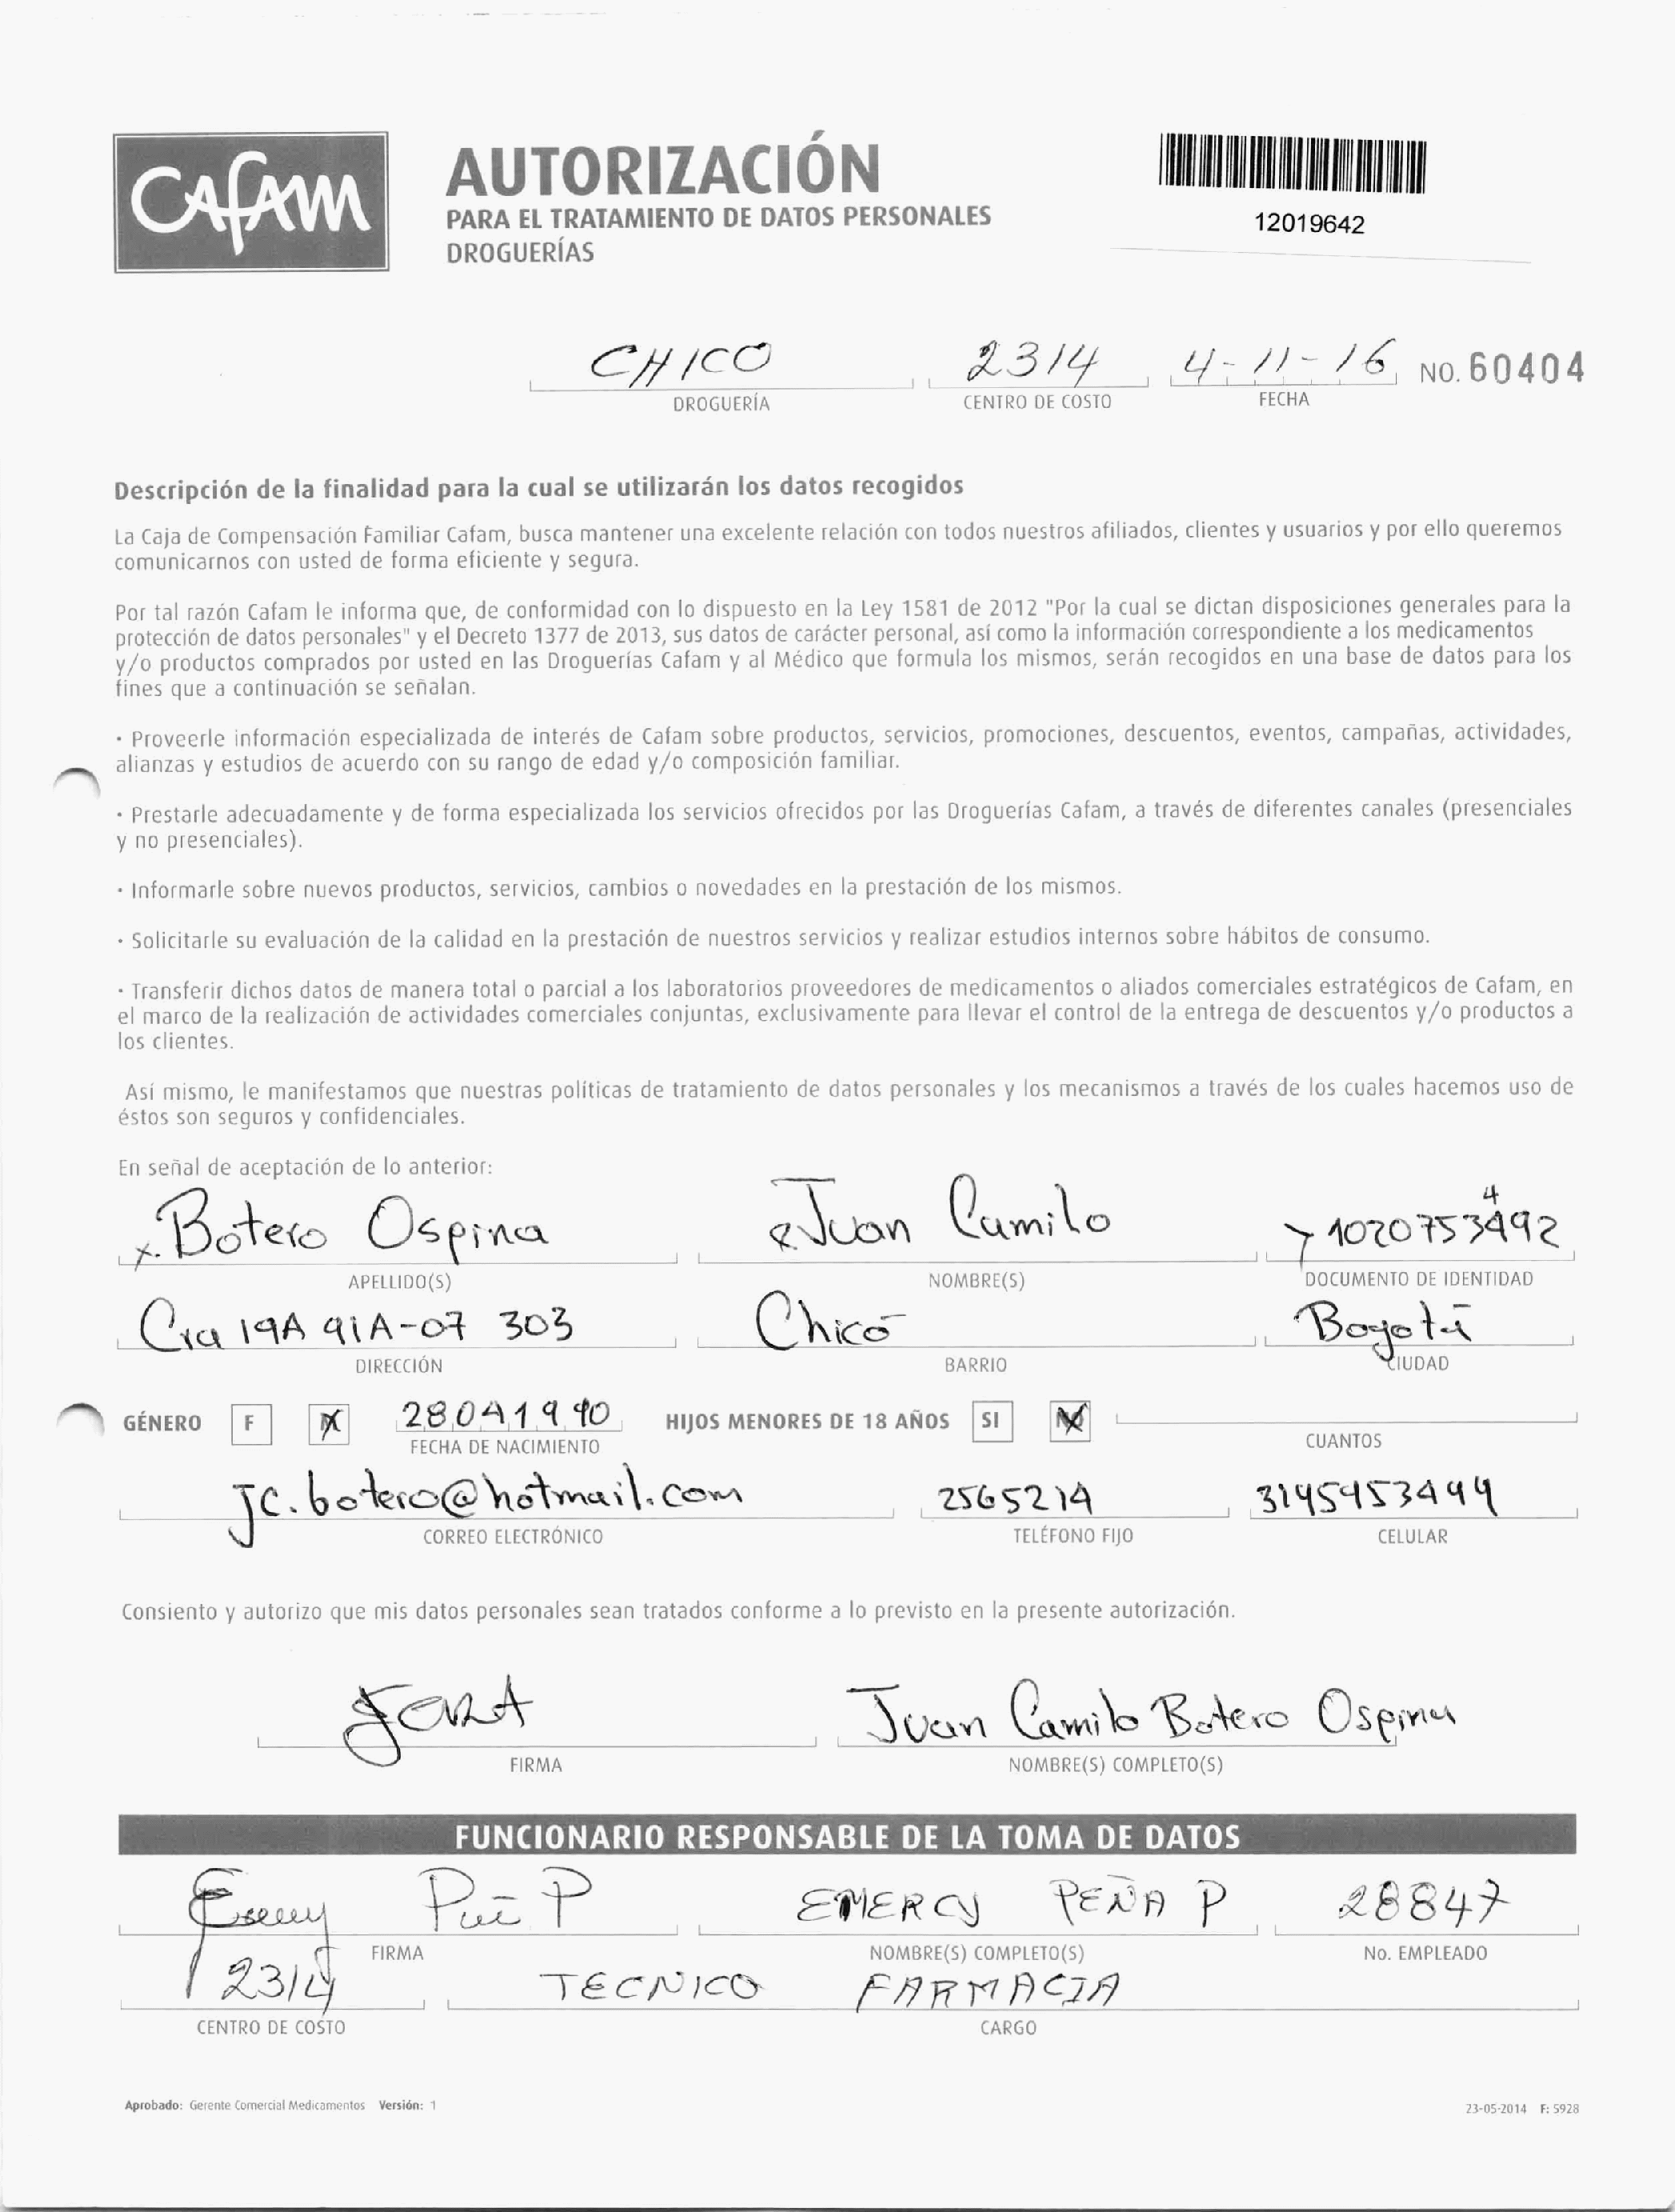 CAFAM
AUTORIZACIÓN
PARA EL TRATAMIENTO DE DATOS PERSONALES
DROGUERÍAS
12019642
CHICO 2314 4-11-16 NO. 60404
DROGUERÍA CENTRO DE COSTO FECHA
Descripción de la finalidad para la cual se utilizarán los datos recogidos
La Caja de Compensación Familiar Cafam, busca mantener una excelente relación con todos nuestros afiliados, clientes y usuarios y por ello queremos
comunicarnos con usted de forma eficiente y segura.
Por tal razón Cafam le informa que, de conformidad con lo dispuesto en la Ley 1581 de 2012 "Por la cual se dictan disposiciones generales para la
protección de datos personales" y el Decreto 1377 de 2013, sus datos de carácter personal, así como la información correspondiente a los medicamentos
y/o productos comprados por usted en las Droguerías Cafam y al Médico que formula los mismos, serán recogidos en una base de datos para los
fines que a continuación se señalan.
· Proveerle información especializada de interés de Cafam sobre productos, servicios, promociones, descuentos, eventos, campañas, actividades,
alianzas y estudios de acuerdo con su rango de edad y/o composición familiar.
· Prestarle adecuadamente y de forma especializada los servicios ofrecidos por las Droguerías Cafam, a través de diferentes canales (presenciales
y no presenciales).
· Informarle sobre nuevos productos, servicios, cambios o novedades en la prestación de los mismos.
· Solicitarle su evaluación de la calidad en la prestación de nuestros servicios y realizar estudios internos sobre hábitos de consumo.
· Transferir dichos datos de manera total o parcial a los laboratorios proveedores de medicamentos o aliados comerciales estratégicos de Cafam, en
el marco de la realización de actividades comerciales conjuntas, exclusivamente para llevar el control de la entrega de descuentos y/o productos a
los clientes.
Así mismo, le manifestamos que nuestras políticas de tratamiento de datos personales y los mecanismos a través de los cuales hacemos uso de
éstos son seguros y confidenciales.
En señal de aceptación de lo anterior:
x. Botero Ospina Juan Camilo 1020753492 4
APELLIDO(S) NOMBRE(S) DOCUMENTO DE IDENTIDAD
Cra 19A 91A-07 303 Chicó Bogotá
DIRECCIÓN BARRIO CIUDAD
GÉNERO F M 28041990 HIJOS MENORES DE 18 AÑOS SI NO
FECHA DE NACIMIENTO CUANTOS
jc.botero@hotmail.com 2565214
CORREO ELECTRÓNICO TELÉFONO FIJO CELULAR
Consiento y autorizo que mis datos personales sean tratados conforme a lo previsto en la presente autorización.
Juan Camilo Botero Ospina
FIRMA NOMBRE(S) COMPLETO(S)
FUNCIONARIO RESPONSABLE DE LA TOMA DE DATOS
EMERCY PEÑA P 28847
FIRMA NOMBRE(S) COMPLETO(S) No. EMPLEADO
2314 TECNICO FARMACIA
CENTRO DE COSTO CARGO
Aprobado: Gerente Comercial Medicamentos Versión: 1 23-05-2014 F: 5928